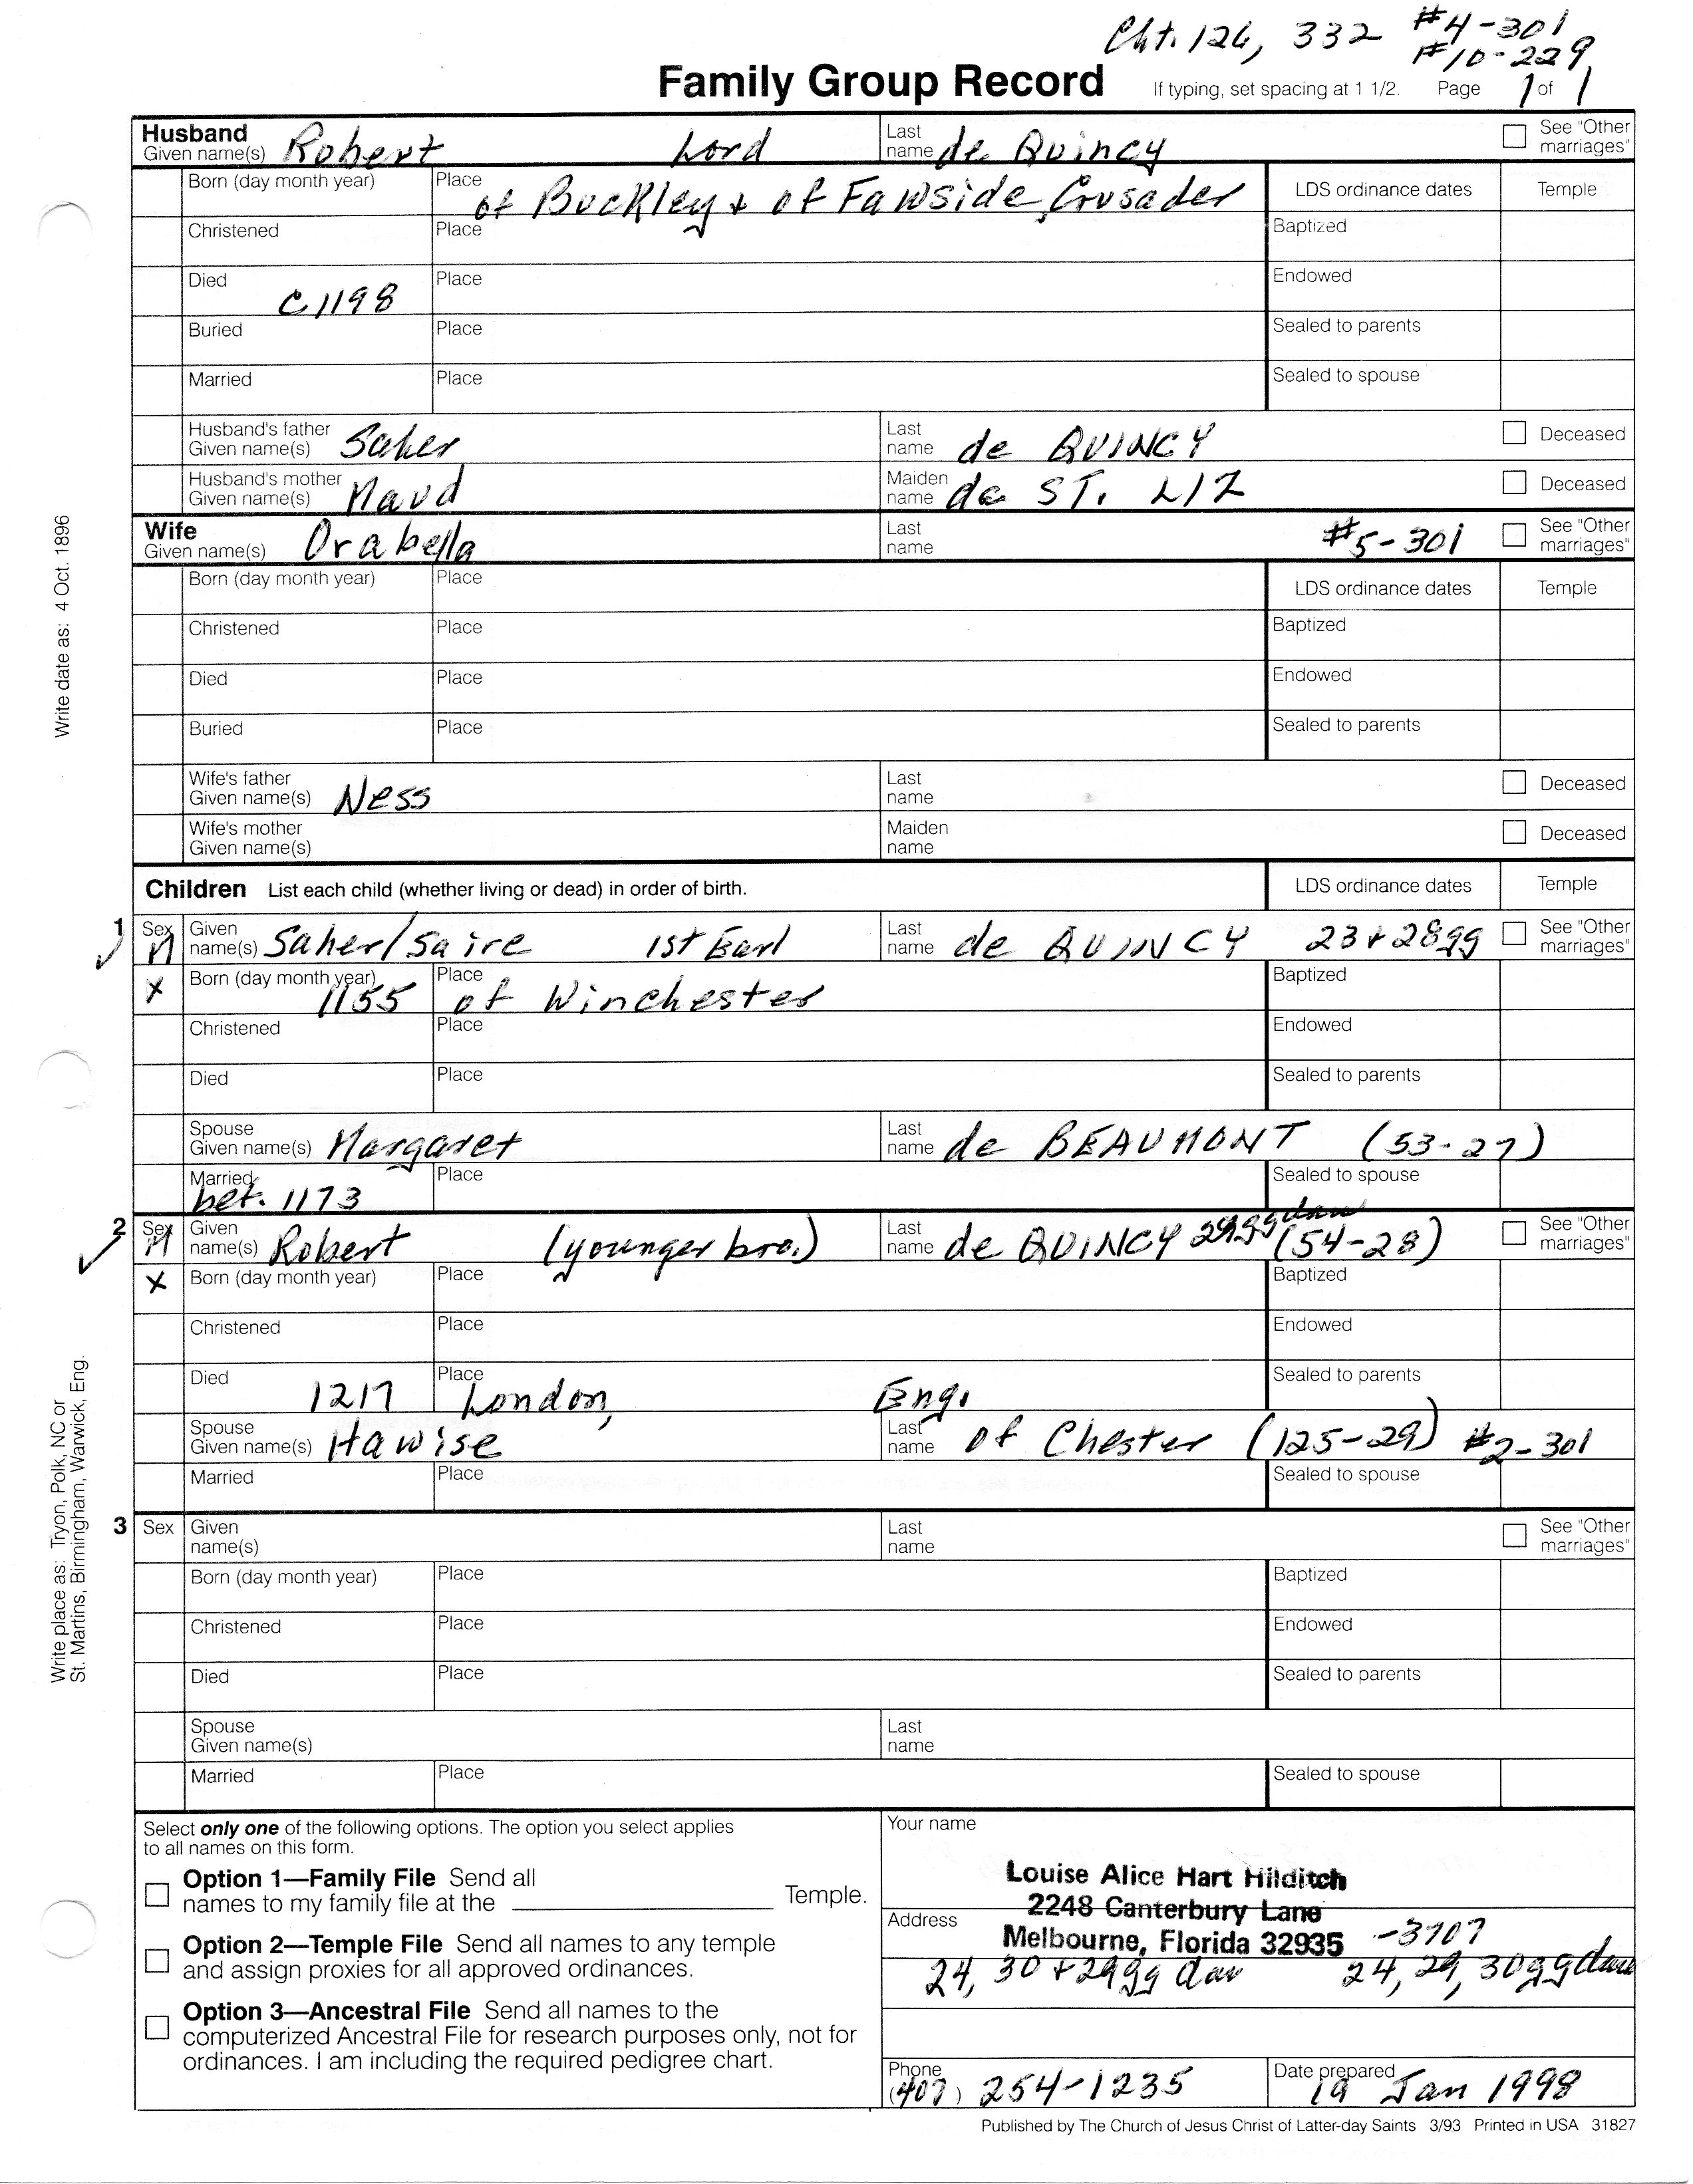 Cht. 126, 332 #4-301
#10-229
Family Group Record If typing, set spacing at 1 1/2. Page 1 of 1
Husband
Given name(s) Robert Lord Last name de Quincy See "Other marriages"
Born (day month year) Place of Buckley + of Fawside, Crusader LDS ordinance dates Temple
Christened Place Baptized
Died C1198 Place Endowed
Buried Place Sealed to parents
Married Place Sealed to spouse
Husband's father Given name(s) Saher Last name de QUINCY Deceased
Husband's mother Given name(s) Maud Maiden name de ST. LIZ Deceased
Wife
Given name(s) Orabella Last name #5-301 See "Other marriages"
Born (day month year) Place LDS ordinance dates Temple
Christened Place Baptized
Died Place Endowed
Buried Place Sealed to parents
Wife's father Given name(s) Ness Last name Deceased
Wife's mother Given name(s) Maiden name Deceased
Children List each child (whether living or dead) in order of birth. LDS ordinance dates Temple
1 Sex M Given name(s) Saher/Saire 1st Earl Last name de QUINCY 23+28gg See "Other marriages"
X Born (day month year) 1155 Place of Winchester Baptized
Christened Place Endowed
Died Place Sealed to parents
Spouse Given name(s) Margaret Last name de BEAUMONT (53-27)
Married bef. 1173 Place Sealed to spouse
2 Sex M Given name(s) Robert (younger bro.) Last name de QUINCY 29gg dau (54-28) See "Other marriages"
X Born (day month year) Place Baptized
Christened Place Endowed
Died 1217 Place London, Eng. Sealed to parents
Spouse Given name(s) Hawise Last name of Chester (125-29) #2-301
Married Place Sealed to spouse
3 Sex Given name(s) Last name See "Other marriages"
Born (day month year) Place Baptized
Christened Place Endowed
Died Place Sealed to parents
Spouse Given name(s) Last name
Married Place Sealed to spouse
Select only one of the following options. The option you select applies
to all names on this form.
Option 1—Family File Send all
names to my family file at the Temple.
Option 2—Temple File Send all names to any temple
and assign proxies for all approved ordinances.
Option 3—Ancestral File Send all names to the
computerized Ancestral File for research purposes only, not for
ordinances. I am including the required pedigree chart.
Your name
Louise Alice Hart Hilditch
2248 Canterbury Lane
Address
Melbourne, Florida 32935 -3707
24, 30 + 29gg dau 24, 29, 30ggdau
Phone (407) 254-1235 Date prepared 19 Jan 1998
Published by The Church of Jesus Christ of Latter-day Saints 3/93 Printed in USA 31827
Write date as: 4 Oct. 1896
Write place as: Tryon, Polk, NC or
St. Martins, Birmingham, Warwick, Eng.